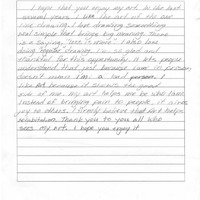 I hope that you enjoy my art. In the last
several years I
line drawing. I love drawing something
real simple that brings big meaning. There
is a saying, "less is more". I also love
doing drawing. I'm so glad and
for this opportunity. It lets people
understand that just because I am in prison,
doesn't mean I'm a bad person. I
like art because it shows the good
side of me. My art helps me be who I am.
Instead of bringing pain to people, it gives
joy to others. I firmly believe that Art helps
rehabilitation. Thank you to you all who
sees my art. I hope you enjoy it.